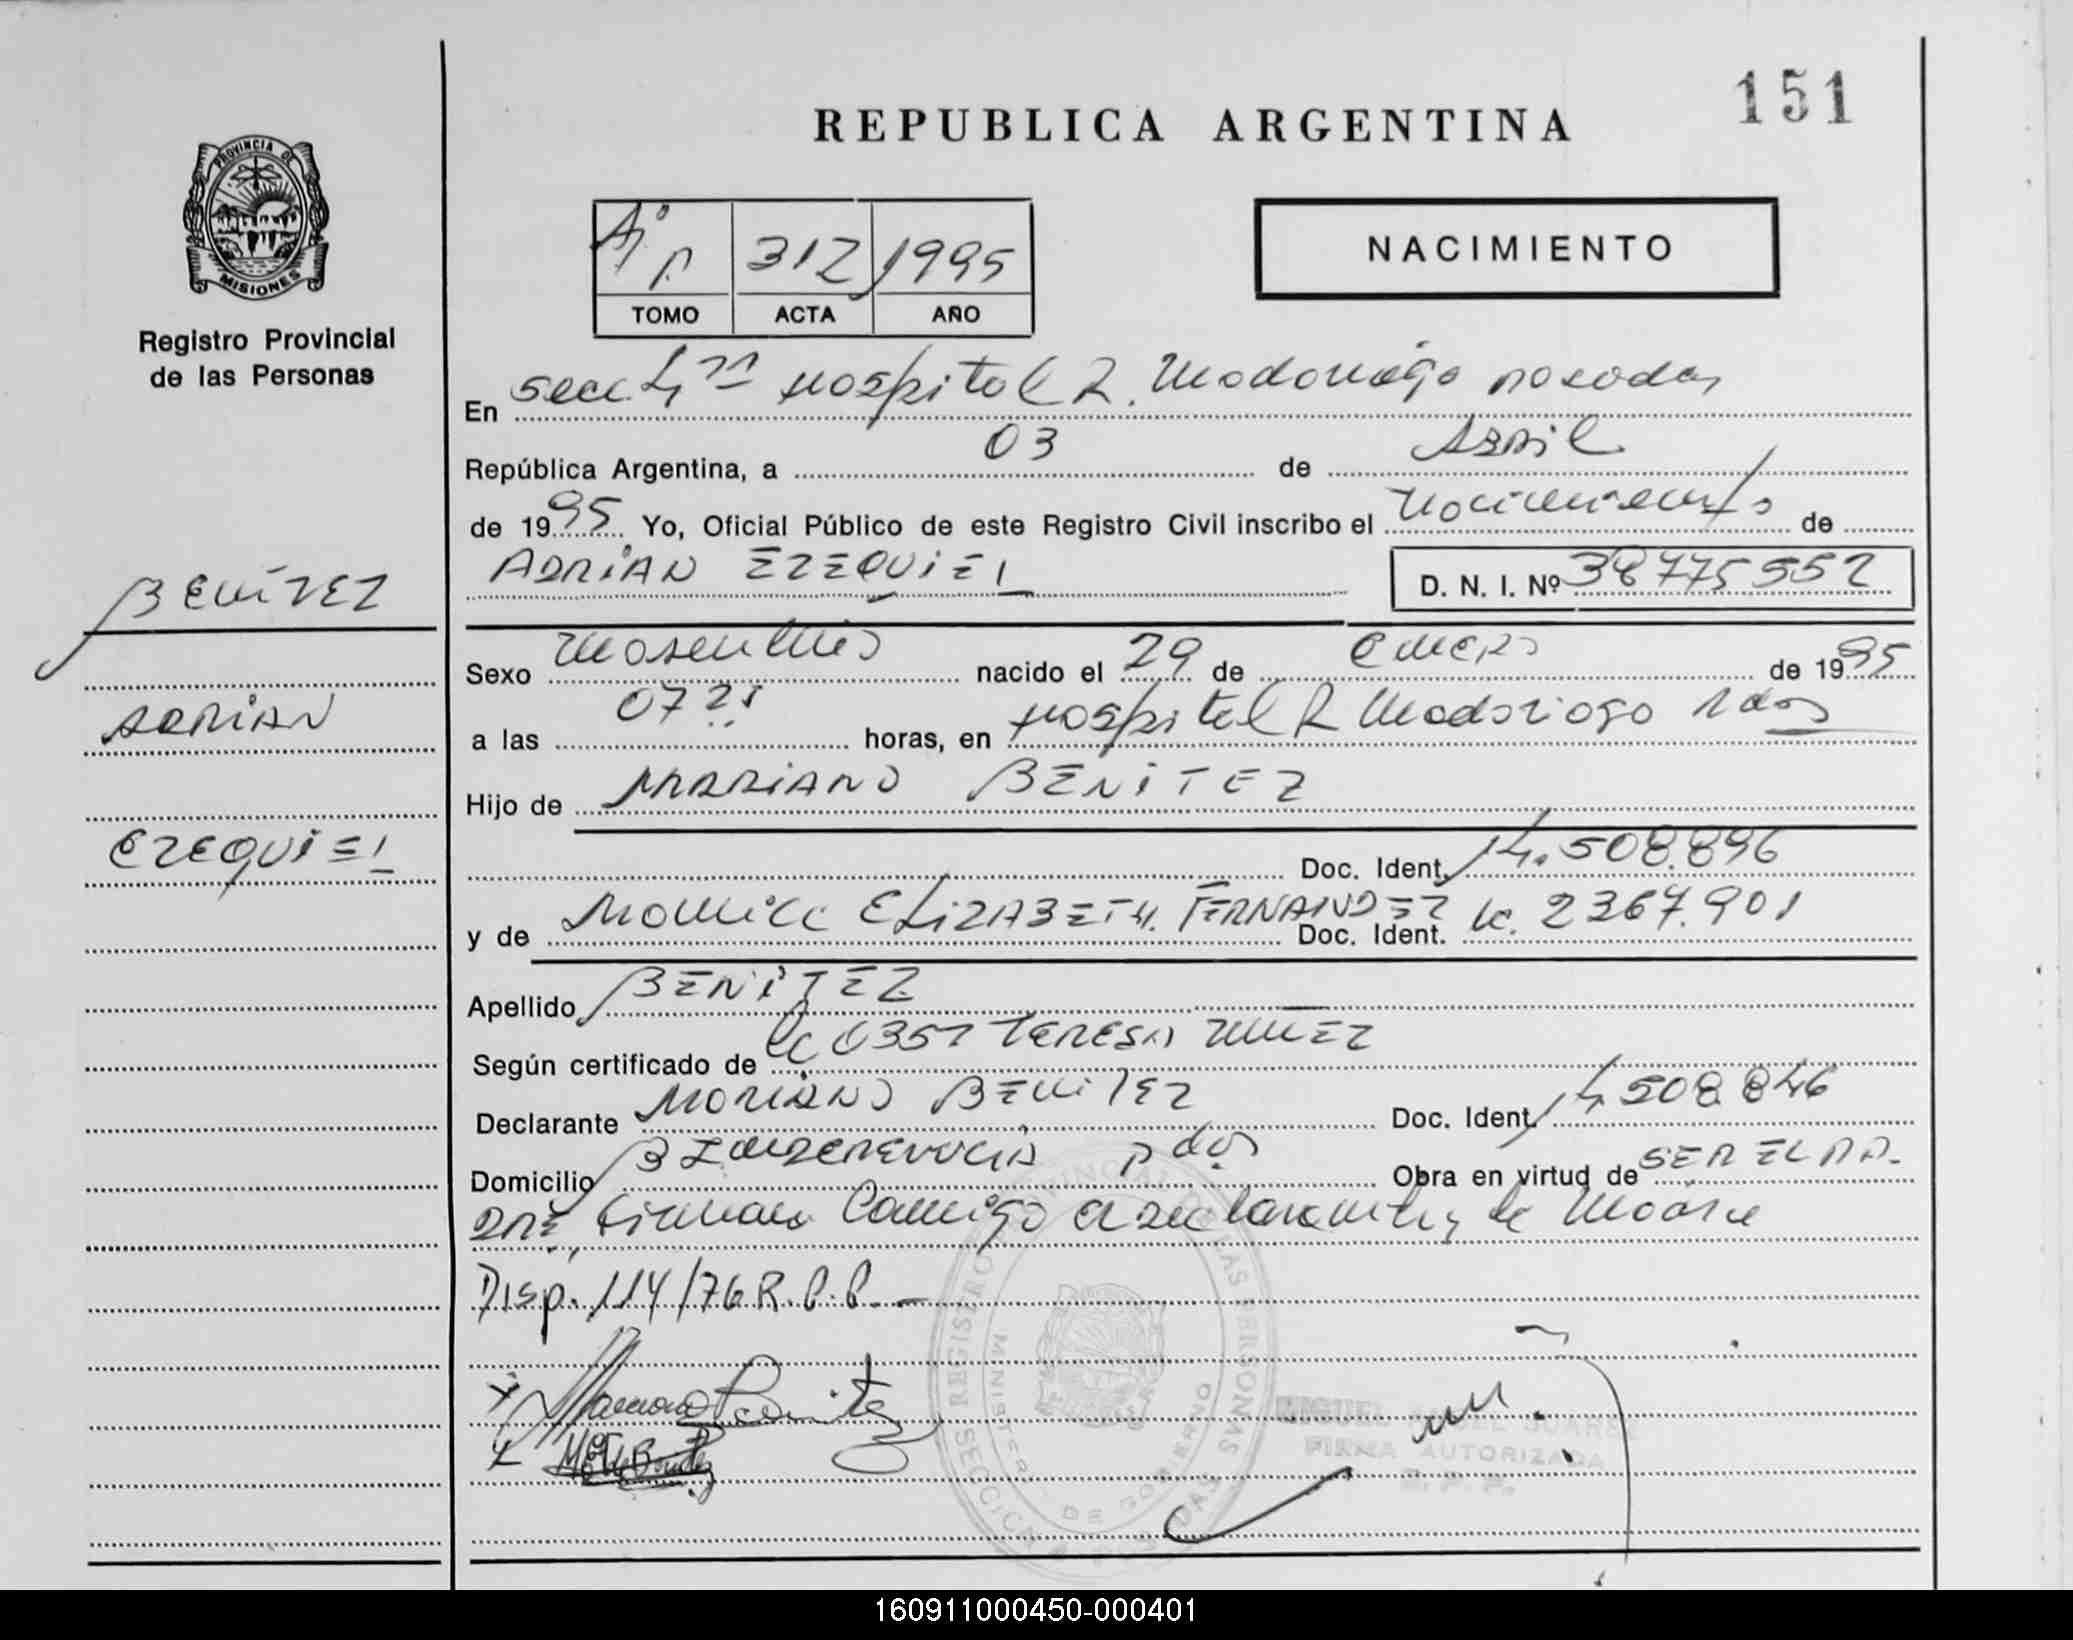 151
REPUBLICA ARGENTINA
PROVINCIA DE
MISIONES
Registro Provincial
de las Personas
312 1995
TOMO ACTA AÑO
NACIMIENTO
En Secc 4ª Hospital R. Madariaga posadas
República Argentina, a 03 de Abril
de 1995 Yo, Oficial Público de este Registro Civil inscribo el nacimiento de
ADRIAN EZEQUIEL D. N. I. Nº 38775552
BENÍTEZ
ADRIAN
EZEQUIEL
Sexo masculino nacido el 29 de enero de 1995
a las 07 horas, en Hospital R Madariaga Pdas
Hijo de MARIANO BENITEZ
Doc. Ident. 14.508.896
y de Monica ELIZABETH FERNANDEZ Doc. Ident. 2367.901
Apellido BENITEZ
Según certificado de 0357 TERESA
Declarante MARIANO BENITEZ Doc. Ident. 14 508 846
Domicilio Bº Independencia Pdas Obra en virtud de SER EL PA-
DRE, Firman Conmigo la madre
Disp. 114/76 R.P.P.-
Mariano Benitez
REGISTRO PROVINCIAL DE LAS PERSONAS
MINISTERIO DE GOBIERNO
MIGUEL ANGEL SUAREZ
FIRMA AUTORIZADA
R. P. P.
160911000450-000401